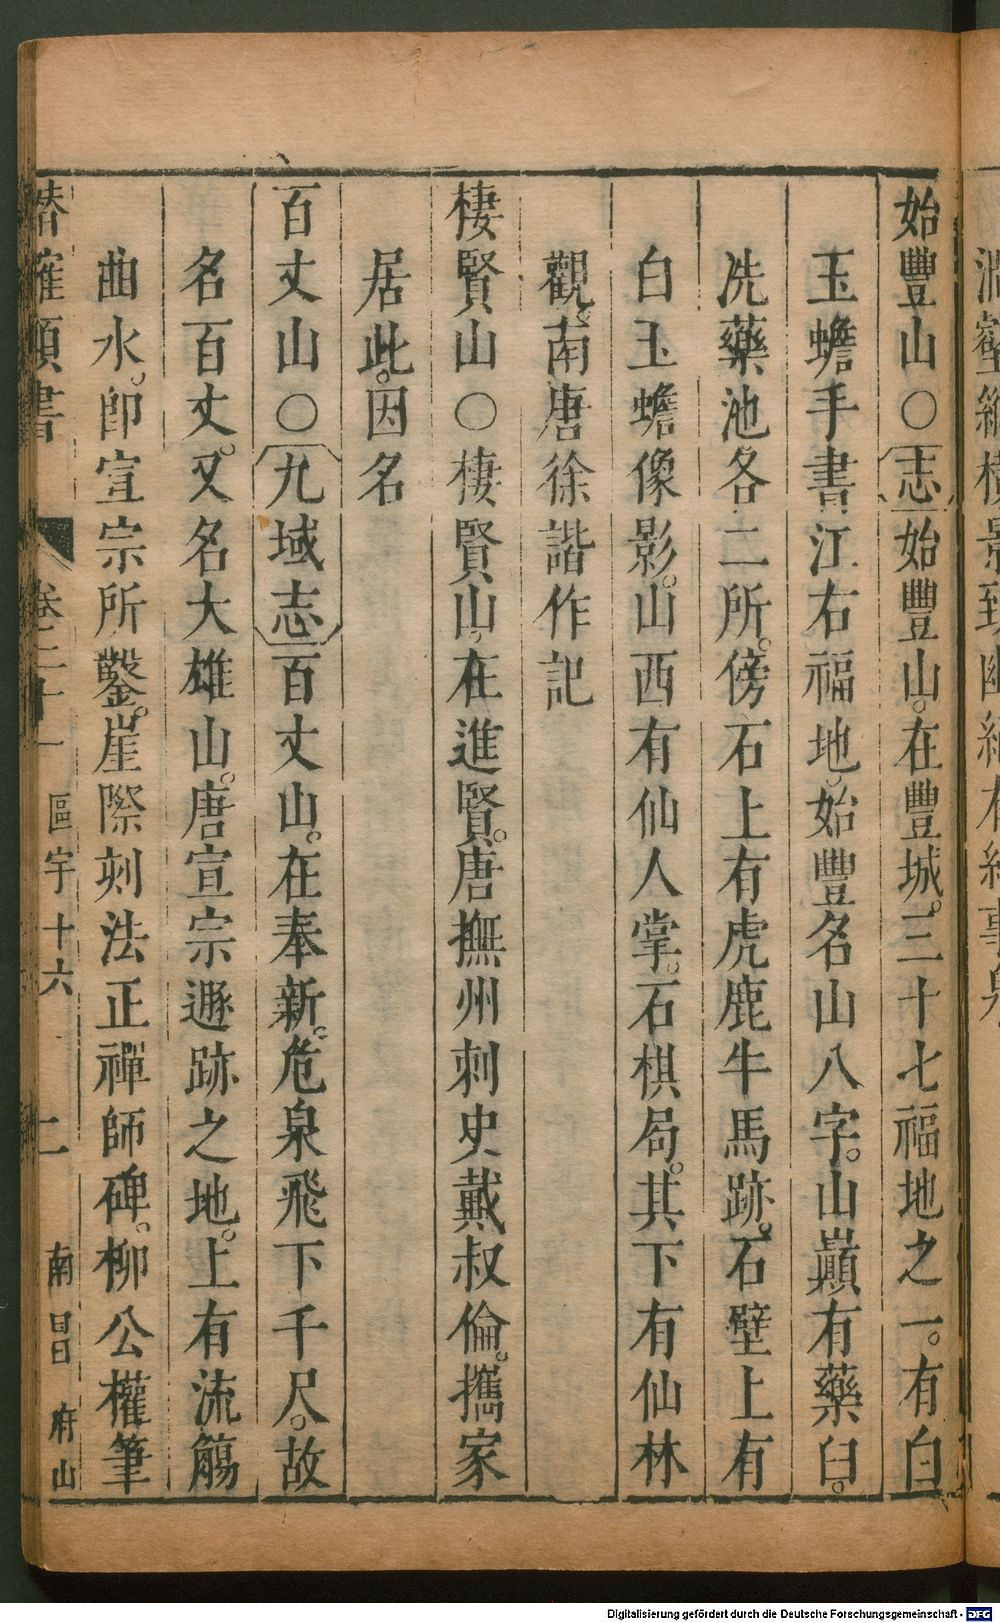 始豐山○志始豐山在豐城三十七福地之一有白
玉蟾手書江右福地始豐名山八字山巔有藥臼
洗藥池各二所傍石上有虎鹿牛馬跡石壁上有
白玉蟾像影山西有仙人掌石棋局其下有仙林
觀南唐徐諧作記
棲賢山○棲賢山在進賢唐撫州刺史戴叔倫攜家
居此因名
百丈山○九域志百丈山在奉新危泉飛下千尺故
名百丈又名大雄山唐宣宗遯跡之地上有流觴
曲水卽宣宗所鑿崖際刻法正禪師碑柳公權筆
潛確類書 卷二十一 區宇十六 二 南昌府山
Digitalisierung gefördert durch die Deutsche Forschungsgemeinschaft - DFG